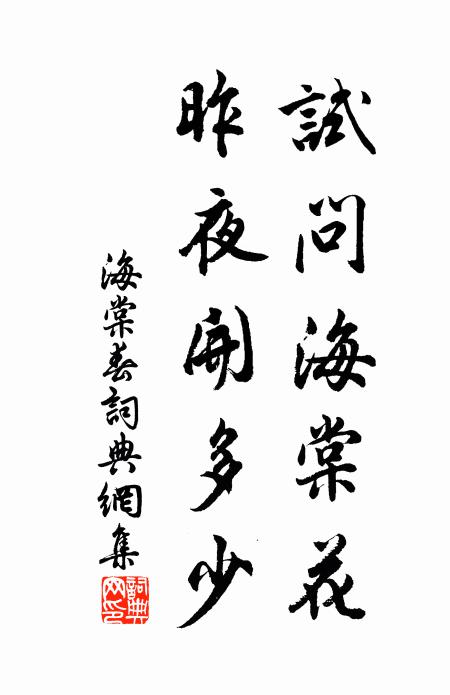 試問海棠花
昨夜開多少
海棠春詞典網集
詞典網印